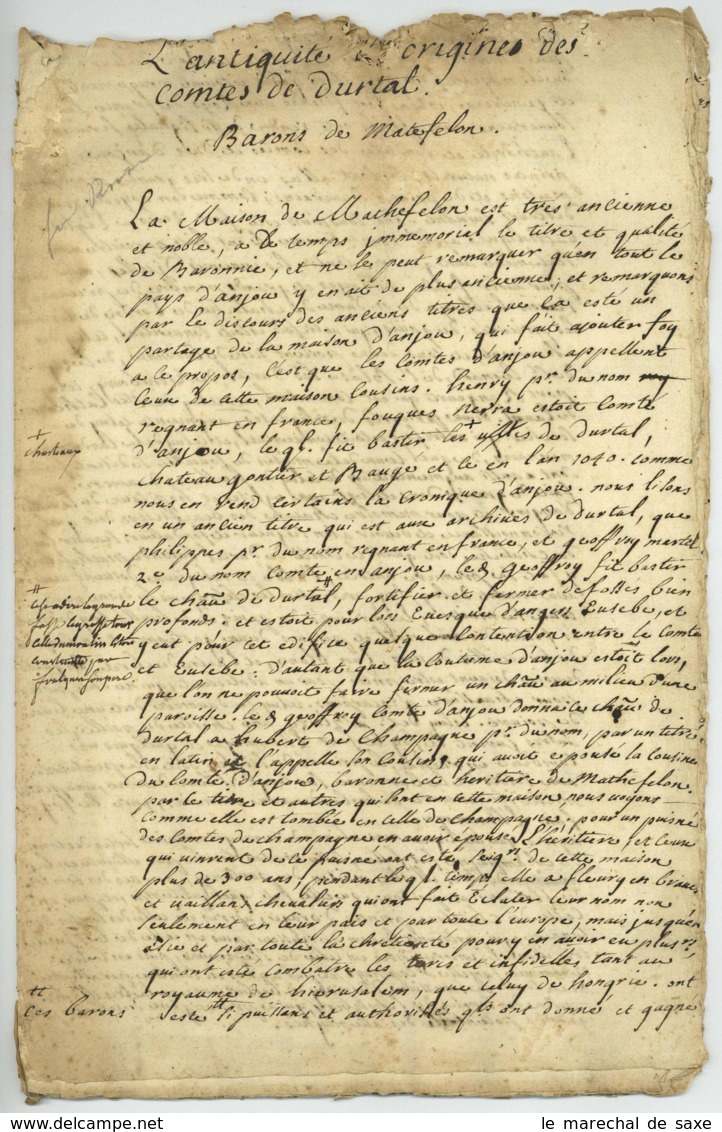 L'antiquité et origine des
Comtes de durtal.
Barons de Matefelon.
La Maison de Mathefelon est tres ancienne
et noble, a de temps jmmemorial le titre et qualité
de Baronnie, et ne se peut remarquer qu'en tout le
pays d'anjou y en ait de plus ancienne; et remarquons
par le discours des anciens titres que ca esté un
partage de la maison d'anjou, qui fait ajouter foy
a ce propos, c'est que les Comtes d'anjou appellent
ceux de cette maison Cousins. henry pr. du nom
regnant en france, fouques nerra estoit Comte
d'anjou, le ql. fit bastir les + villes de durtal,
+
chasteaux
chateau gontier et Baugé et ce en l'an 1040. comme
nous en rend certains la cronique d'anjou. nous lisons
en un ancien titre qui est aux archives de durtal, que
philippes pr. du nom regnant en france, et geoffroy martel
2e. du nom Comte en anjou, le d. Geoffroy fit bastir
le chau de durtal #, fortifier et fermer de fossés bien
profonds. et estoit pour lors Evesque d'angers Eusebe, et
y eut pour cet edifice quelque Contention entre le Comte
et Eusebe: D'autant que la Coutume d'anjou estoit lors,
que l'on ne pouvoit faire fermer un chau au milieu d'une
paroisse. le d. geoffroy Comte d'anjou donna ce chau de
durtal a hubert de Champagne pr. du nom, par un titre
en latin et l'appelle son Cousin, qui avoit epousé la cousine
du Comte d'anjou, baronne et heritiere de Mathefelon.
par le titre et autres qui sont en cette maison nous voyons
comme elle est tombée en celle de champagne. pour un puisné
des Comtes de champagne en avoir épousé l'héritiere, et ceux
qui vinrent de ce puisné ont esté seigrs. de cette maison
plus de 300 ans, pendant le ql. temps elle a fleury en braves
et vaillans chevaliers qui ont fait Eclater leur nom non
seulement en leur païs et par toute l'europe, mais jusqu'en
asie et par toute la chretienté pour y en avoir eu plusrs.
qui ont esté combatre les turcs et infidelles tant au
royaume de hierusalem, que celuy de hongrie. ont
tt
ces barons
esté tt si puissans et authorisés qls ont donné et gagné
le marechal de saxe